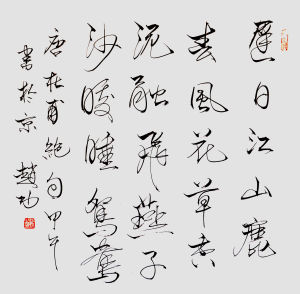 遲日江山麗
春風花草香
泥融飛燕子
沙暖睡鴛鴦
唐杜甫絕句甲午
書於京 趙